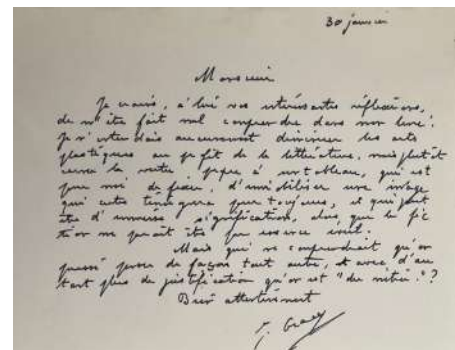 30 janvier
Monsieur
Je crains, à lire vos intéressantes réflexions,
de m'être fait mal comprendre dans mon livre.
Je n'entendais aucunement diminuer les arts
plastiques au profit de la littérature, mais plutôt
cerner la vertu propre à un tableau, qui est
pour moi de figer, d'immobiliser une image
qui autre pour toujours, et qui peut
être d'immense signification, alors que la fic
tion me paraît être par essence
Mais qui ne comprendrait qu'on
puisse penser de façon tout autre, et avec d'au
tant plus de justification qu'on est "du métier"?
Bien attentivement
J. Gracq